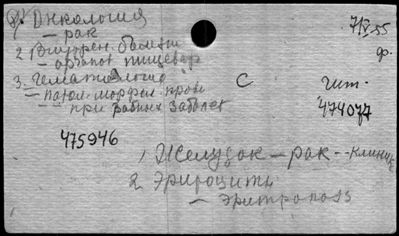 1. Онкология
— рак
7/IV 55
2 Внутрен. болезни
— органов пищевар
ф.
3. Гематология
— патол. морфол. крови
С
— при разных заболев
474077
475946
1 Желудок — рак -- клиника
2 Эритроциты
— эритропоэз